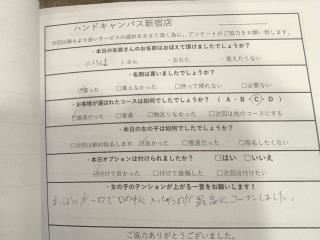 ハンドキャンパス新宿店
次回以降もより良いサービスの提供をさせて頂く為に、アンケートのご協力をお願い致します。
・本日の生徒さんのお名前はおぼえて頂けましたでしょうか?
( いちは )さん ・忘れた ・覚えたくない
・名刺は貰いましたでしょうか?
☑貰った □貰えなかった □持って帰れない □必要ない
・お客様が選ばれたコースは如何でしたでしょうか? ( A・B・C・D )
☑最高だった □普通 □物足りなかった □次回は他のコースにする
・本日の女の子は如何でしたでしょうか?
□次回は絶対指名します ☑良かった □普通だった □指名したくない
・本日オプションは付けられましたか? □はい □いいえ
☑付けて良かった □付けて後悔した □次回は付けたい
・女の子のテンションが上がる一言をお願いします!
最高にコーフンしました。
ご協力ありがとうございました。